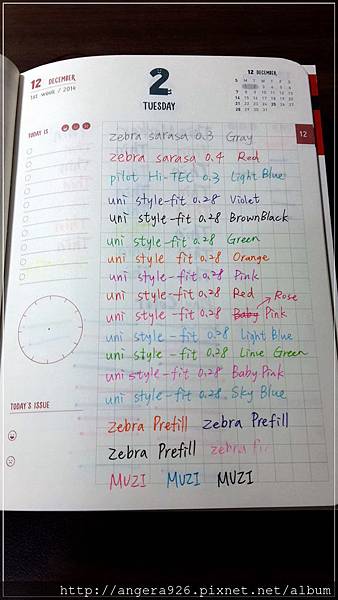 12 DECEMBER
1st WEEK / 2014
2
TUESDAY
12 DECEMBER
S M T W T F S
1 2 3 4 5 6
7 8 9 10 11 12 13
14 15 16 17 18 19 20
21 22 23 24 25 26 27
28 29 30 31
TODAY IS
12
zebra sarasa 0.3 Gray
zebra sarasa 0.4 Red
pilot Hi-TEC 0.3 Light Blue
uni style-fit 0.28 Violet
uni style-fit 0.28 BrownBlack
uni style-fit 0.28 Green
uni style fit 0.28 Orange
uni style-fit 0.28 Pink
uni style-fit 0.28 Red Rose
uni style-fit 0.28 Baby Pink
uni style-fit 0.28 Light Blue
uni style-fit 0.28 Lime Green
uni style-fit 0.28 Baby Pink
uni style-fit 0.28 Sky Blue
TODAY'S ISSUE
zebra Prefill zebra Prefill
zebra Prefill zebra
MUZI MUZI MUZI
http://angera926.pixnet.net/album